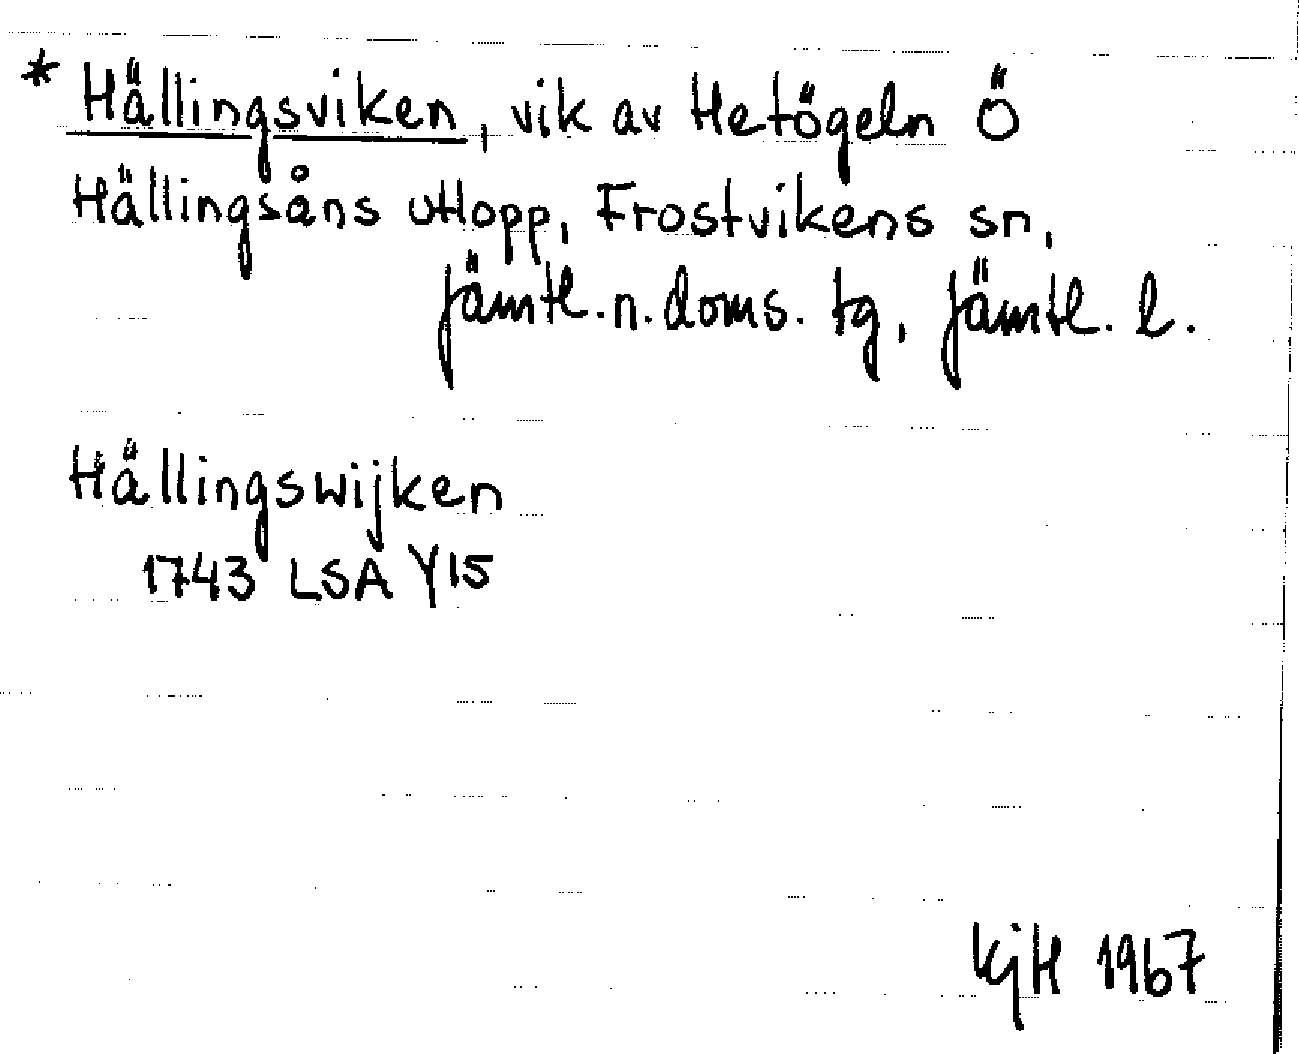 * Hällingsviken, vik av Hetögeln Ö
Hällingsåns utlopp, Frostvikens sn,
Jämtl. n. doms. tg, Jämtl. l.
Hällingswijken
1743 LSA Y15
KjH 1967